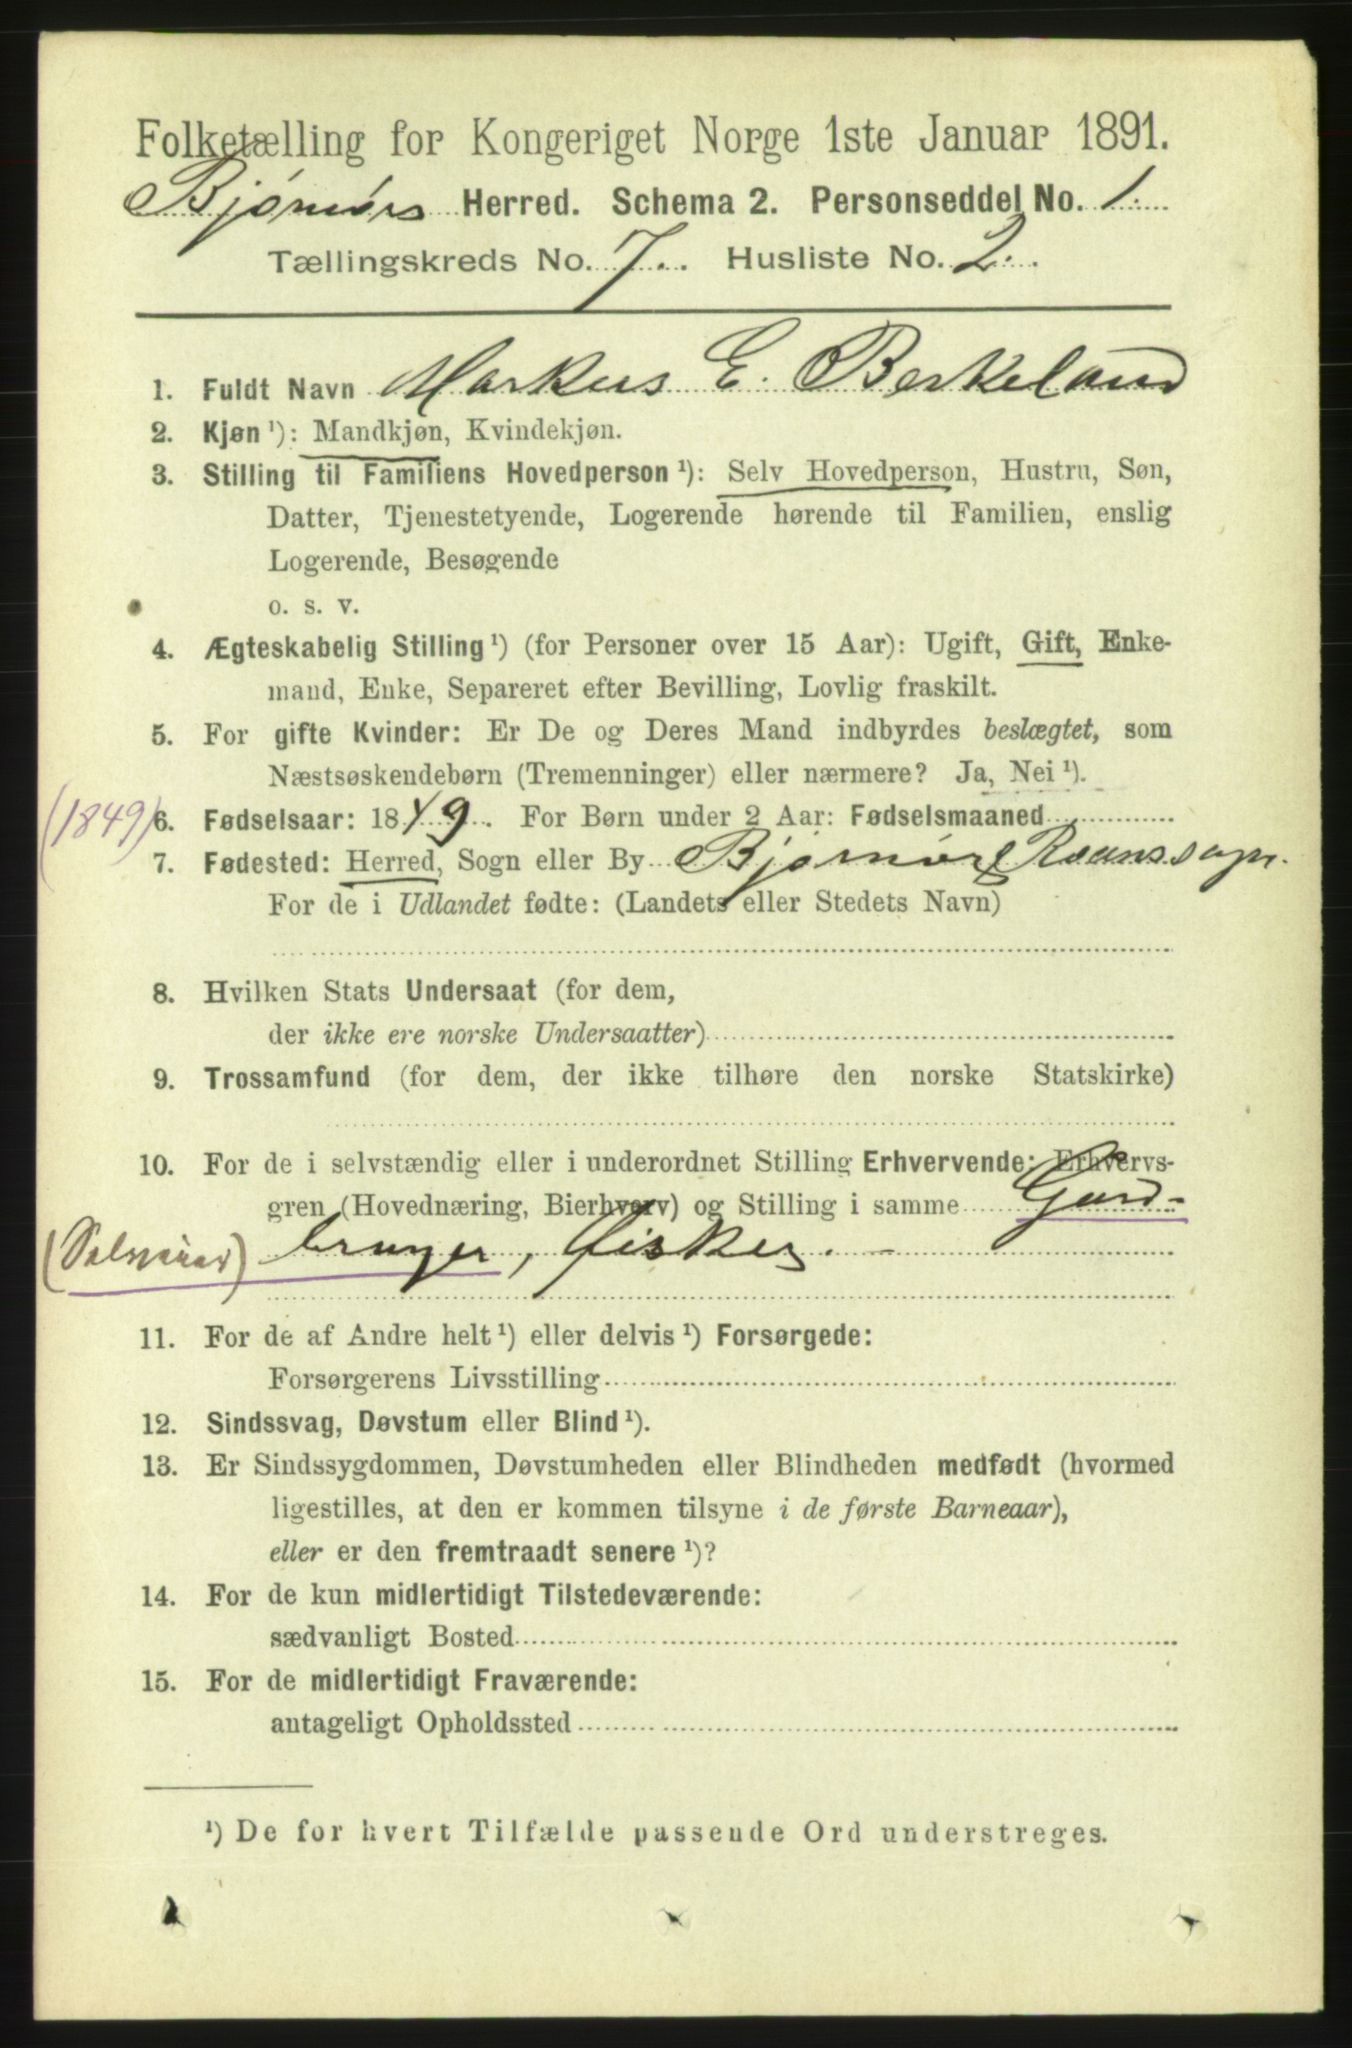 Folketælling for Kongeriget Norge 1ste Januar 1891.
Bjørnørs Herred. Schema 2. Personseddel No. 1.
Tællingskreds No. 7. Husliste No. 2.
1. Fuldt Navn Markus E. Berkeland
2. Kjøn ¹): Mandkjøn, Kvindekjøn.
3. Stilling til Familiens Hovedperson ¹): Selv Hovedperson, Hustru, Søn,
Datter, Tjenestetyende, Logerende hørende til Familien, enslig
Logerende, Besøgende
o. s. v.
4. Ægteskabelig Stilling ¹) (for Personer over 15 Aar): Ugift, Gift, Enke-
mand, Enke, Separeret efter Bevilling, Lovlig fraskilt.
5. For gifte Kvinder: Er De og Deres Mand indbyrdes beslægtet, som
Næstsøskendebørn (Tremenninger) eller nærmere? Ja, Nei ¹).
(1849) 6. Fødselsaar: 1849. For Børn under 2 Aar: Fødselsmaaned
7. Fødested: Herred, Sogn eller By Bjørnør Roanssogn.
For de i Udlandet fødte: (Landets eller Stedets Navn)
8. Hvilken Stats Undersaat (for dem,
der ikke ere norske Undersaatter)
9. Trossamfund (for dem, der ikke tilhøre den norske Statskirke)
10. For de i selvstændig eller i underordnet Stilling Erhvervende: Erhvervs-
gren (Hovednæring, Bierhverv) og Stilling i samme Gård-
(Selveier) bruger, fisker.
11. For de af Andre helt ¹) eller delvis ¹) Forsørgede:
Forsørgerens Livsstilling
12. Sindssvag, Døvstum eller Blind ¹).
13. Er Sindssygdommen, Døvstumheden eller Blindheden medfødt (hvormed
ligestilles, at den er kommen tilsyne i de første Barneaar),
eller er den fremtraadt senere ¹)?
14. For de kun midlertidigt Tilstedeværende:
sædvanligt Bosted
15. For de midlertidigt Fraværende:
antageligt Opholdssted
¹) De for hvert Tilfælde passende Ord understreges.